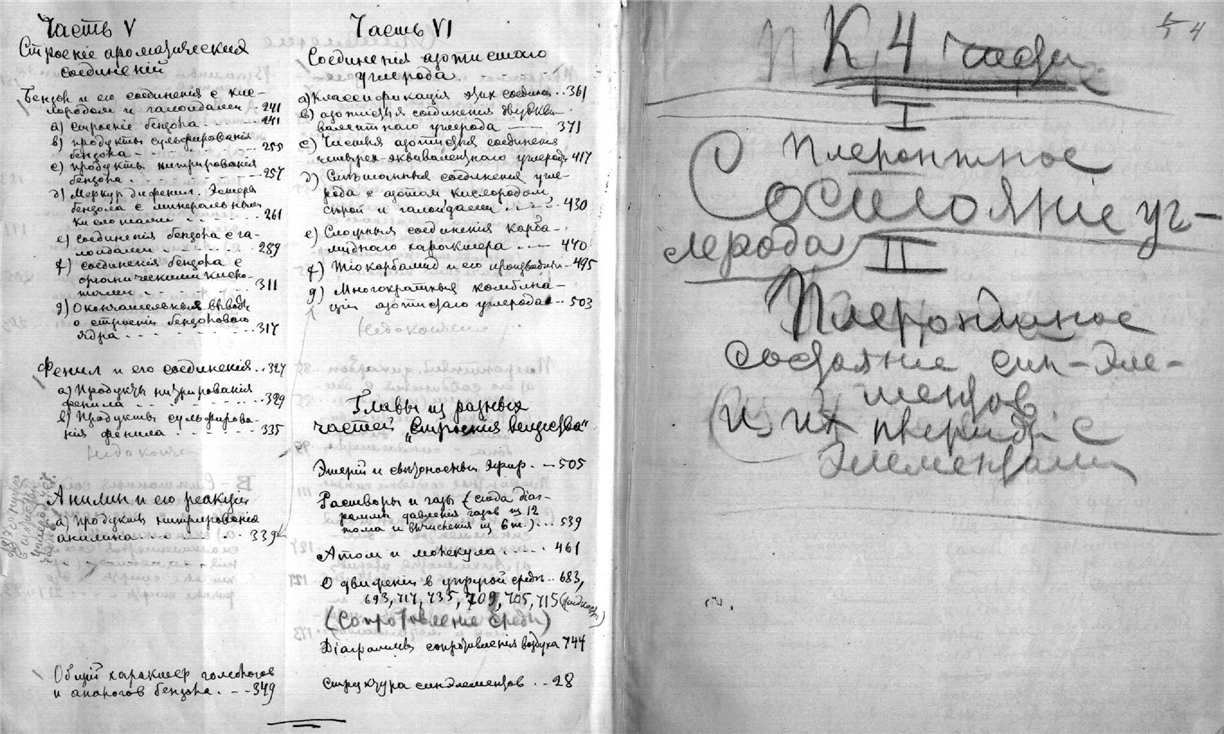 Часть V
Строение ароматических
соединений
Бензол и его соединения с кис-
лородом и галоидами - 241
a) строение бензола - - 241
b) продукты сульфирования
бензола - - 255
c) продукты нитрирования
бензола - - 257
d) Меркур дифенил. Эстеры
бензола с минеральными
кислотами - 261
e) соединения бензола с га-
лоидами - - 289
f) соединения бензола с
органическими кисло-
тами - - 311
g) Окончательные выводы
о строении бензолового
ядра - - - 317
Фенил и его соединения - - 327
a) Продукты нитрирования
фенила - - - 329
b) Продукты сульфирова-
ния фенила - - - 335
Анилин и его реакции
a) продукты нитрирования
анилина - - - 339
Общий характер гомологов
и аналогов бензола - - - 349
Часть VI
Соединения азотистаго
углерода.
a) Классификация этих соедин. - 361
b) азотистыя соединения двуэкви-
валентнаго углерода - - 371
c) Чистыя азотистыя соединения
четырех-эквивалентнаго углерода 417
d) Смешанныя соединения угле-
рода с азотом кислородом
сърой и галоидами - - - 430
e) Сложныя соединения карба-
миднаго характера - - - 440
f) Тiокарбамид и его производн. - 495
g) Многократныя комбина-
ции азотистаго углерода - - 503
Главы из разных
частей "Строения вещества"
Эшерги и свътоносный эфир. - 505
Растворы и газы (сюда дiаг-
раммы давления газов из 12
тома и вычисления из 6 т.) - - 539
Атом и молекула - - - - 461
О движении в упругой средъ - - 683,
693, 717, 735, 709, 705, 715
(Сопротивление среды)
Дiаграммы сопротивления воздуха 744
Структура синэлементов - - 28
К 4 части
4
I
Плеронтное
Состоянiе уг-
лерода
II
Плеронтное
состояние син-эле-
ментов
и их с
элементами